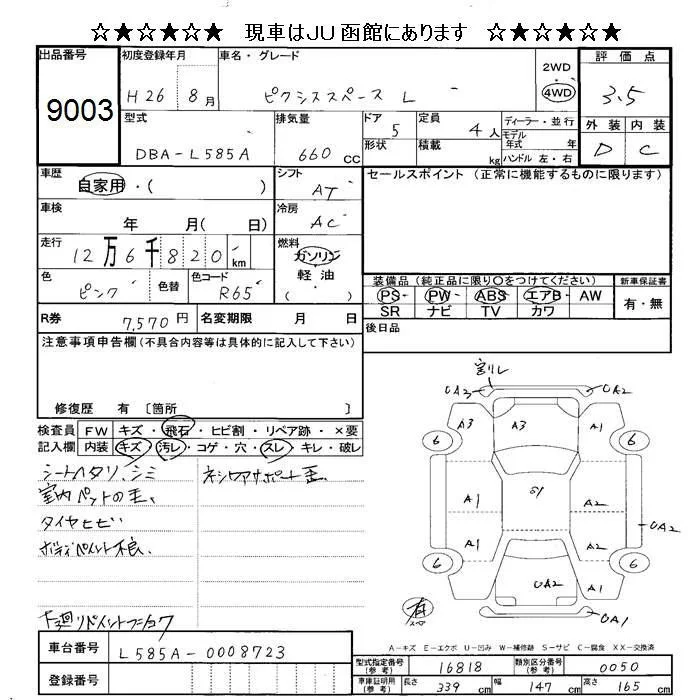 ☆★☆★☆★ 現車はJU函館にあります ☆★☆★☆★
出品番号 初度登録年月 車名・グレード 2WD 評価点
9003 H26 8月 ピクシススペース L 4WD 3.5
型式 排気量 ドア 定員 ディーラー・並行 外装 内装
DBA-L585A 660cc 5 4人 モデル年式 年 D C
形状 積載 kg ハンドル 左・右
車歴 自家用・( ) シフト AT セールスポイント (正常に機能するものに限ります)
車検 年 月( 日) 冷房 AC
走行 12万6千820km 燃料 ガソリン
軽油
( )
色 ピンク 色替 色コード R65 装備品 (純正品に限り○をつけてください) 新車保証書
PS PW ABS エアB AW 有・無
SR ナビ TV カワ
R券 7,570円 名変期限 月 日 後日品
注意事項申告欄(不具合内容等は具体的に記入して下さい)
修復歴 有 〔箇所 〕
検査員 FW キズ・飛石・ヒビ割・リペア跡・×要
記入欄 内装 キズ・汚レ・コゲ・穴・スレ・キレ・破レ
シートヘタリ、シミ
室内ペットの毛、
タイヤヒビ
ボディペイント不良、
下廻リペイントフニョク
割レ
UA3 UA2
A3 A3 A1
6 6
A1 S1 A2
UA2
A1 A2
6 UA2 6
有 スペア UA1
A-キズ E-エクボ U-凹み W-補修跡 S-サビ C-腐食 XX-交換済
車台番号 L585A-0008723
登録番号
型式指定番号(参考) 16818 類別区分番号(参考) 0050
車庫証明用(参考) 長さ 339cm 幅 147cm 高さ 165cm